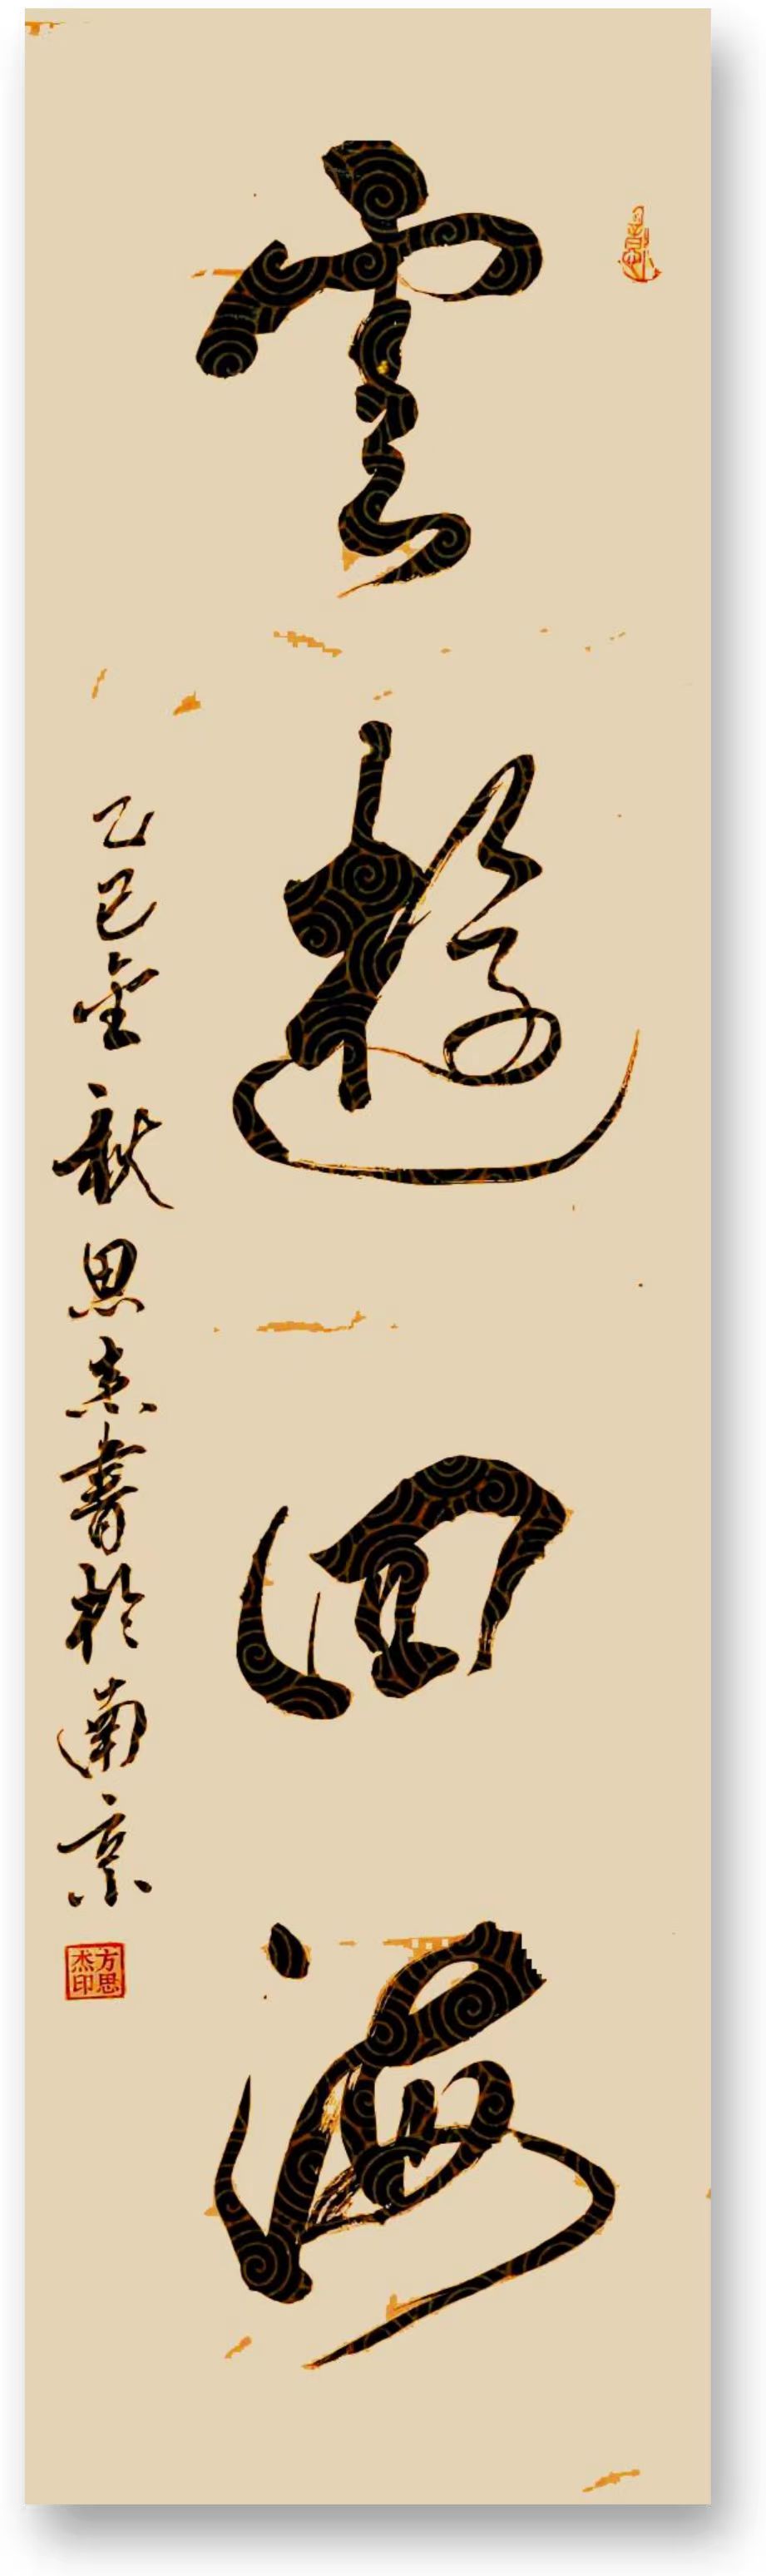 雲遊四海
乙巳金秋思杰書於南京
方思杰印